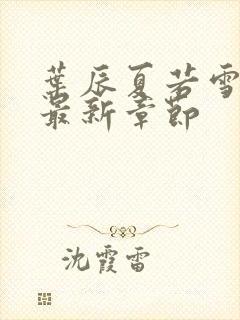 葉辰夏若雪
最新章節
沈霞雷